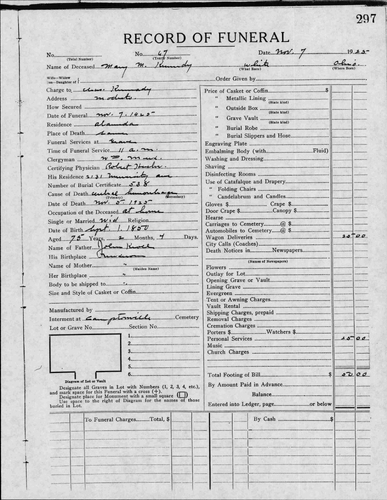 297
RECORD OF FUNERAL
No. No. 67 Date Nov. 7 1925
(Total Number) (Yearly Number)
Name of Deceased Mary M. Kennedy White Ohio
(What Race) (Where Born)
Charge to Kennedy
Address Modesto
How Secured
Date of Funeral Nov. 7, 1925
Residence Alameda
Place of Death Same
Funeral Services at Grave
Time of Funeral Service 11 a.m.
Clergyman
Certifying Physician Robert
His Residence 2131 University Ave
Number of Burial Certificate 538
Cause of Death Hemorrhage
(Primary) (Secondary)
Date of Death Nov. 5, 1925
Occupation of the Deceased At home
Single or Married Wid Religion
Date of Birth Sept. 1, 1850
Aged 75 Years 2 Months 4 Days
Name of Father John
His Birthplace
Name of Mother "
(Maiden Name)
Her Birthplace "
Body to be shipped to
Size and Style of Casket or Coffin
Manufactured by
Interment at Camptonville Cemetery
Lot or Grave No. Section No.
1.
2.
3.
4.
5.
6.
Diagram of Lot or Vault
Designate all Graves in Lot with Numbers (1, 2, 3, 4, etc.),
and mark space for this Funeral with a cross (+).
Designate place for Monument with a small square
Use space to the right of Diagram for the names of those
buried in Lot.
To Funeral Charges Total, $
Order Given by
Price of Casket or Coffin
" Metallic Lining
(State kind)
" Outside Box
(State kind)
" Grave Vault
(State kind)
" Burial Robe
(State kind)
" Burial Slippers and Hose
Engraving Plate
Embalming Body (with Fluid)
Washing and Dressing
Shaving
Disinfecting Rooms
Use of Catafalque and Drapery
" Folding Chairs
" Candelabrum and Candles
Gloves $ Crape $
Door Crape $ Canopy $
Hearse
Carriages to Cemetery @ $
Automobiles to Cemetery @ $
Wagon Deliveries
City Calls (Coaches)
Death Notices in Newspapers
(Names of Newspapers)
Flowers
Outlay for Lot
Opening Grave or Vault
Lining Grave
Evergreen
Tent or Awning Charges
Vault Rental
Shipping Charges, prepaid
Removal Charges
Cremation Charges
Porters $ Watchers $
Personal Services 25 00
Music
Church Charges
Total Footing of Bill $
By Amount Paid in Advance
Balance
Entered into Ledger, page or below
By Cash $